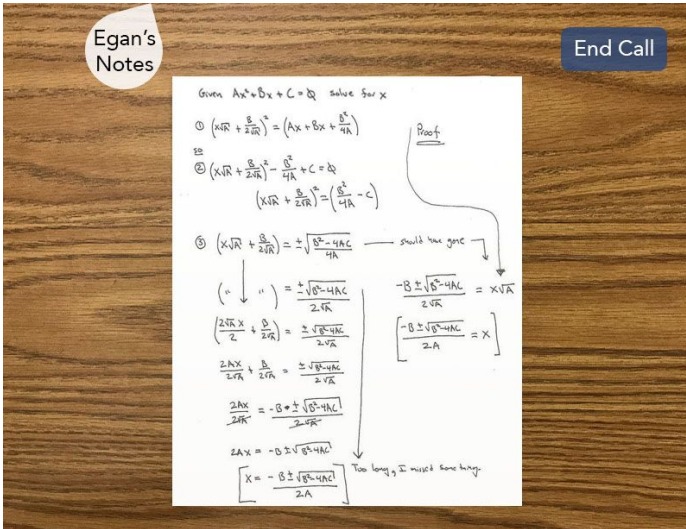 Egan's
Notes
End Call
Given Ax²+Bx + C = 0 solve for x
① (x√A + B/2√A)² = (Ax + Bx + B²/4A)
so
② (x√A + B/2√A)² - B²/4A + C = 0
(x√A + B/2√A)² = (B²/4A - C)
③ (x√A + B/2√A) = ±√(B²-4AC/4A) — should have gone
(" ") = ±√B²-4AC/2√A
(2√A x/2 + B/2√A) = ±√B²-4AC/2√A
2Ax/2√A + B/2√A = ±√B²-4AC/2√A
2Ax/2√A = -B + ±√B²-4AC/2√A
2Ax = -B ±√B²-4AC
[x = -B ±√B²-4AC/2A]
Too long, I missed something.
Proof
-B ±√B²-4AC/2√A = x√A
[-B ±√B²-4AC/2A = x]